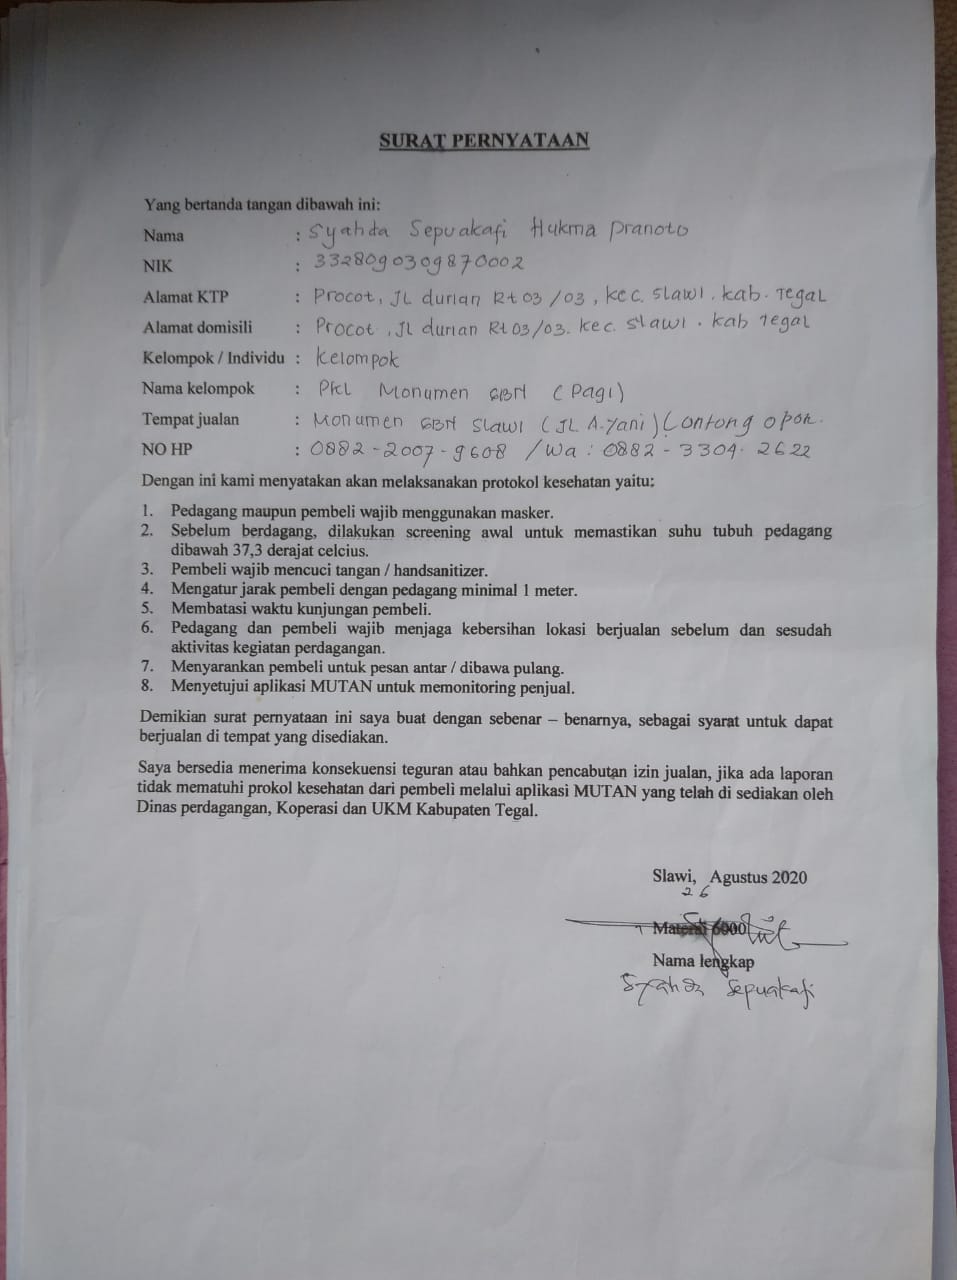 SURAT PERNYATAAN
Yang bertanda tangan dibawah ini:
Nama : Syahda Sepuakafi Hukma Pranoto
NIK : 3328090309870002
Alamat KTP : Procot, JL durian Rt 03 /03, kec. Slawi. kab. Tegal
Alamat domisili : Procot, JL durian Rt 03/03. kec. Slawi. kab Tegal
Kelompok / Individu : Kelompok
Nama kelompok : PKL Monumen GBN (Pagi)
Tempat jualan : Monumen GBN Slawi (JL A. Yani) Lontong opor.
NO HP : 0882-2007-9608 /Wa : 0882-3304-2622
Dengan ini kami menyatakan akan melaksanakan protokol kesehatan yaitu:
1. Pedagang maupun pembeli wajib menggunakan masker.
2. Sebelum berdagang, dilakukan screening awal untuk memastikan suhu tubuh pedagang
dibawah 37,3 derajat celcius.
3. Pembeli wajib mencuci tangan / handsanitizer.
4. Mengatur jarak pembeli dengan pedagang minimal 1 meter.
5. Membatasi waktu kunjungan pembeli.
6. Pedagang dan pembeli wajib menjaga kebersihan lokasi berjualan sebelum dan sesudah
aktivitas kegiatan perdagangan.
7. Menyarankan pembeli untuk pesan antar / dibawa pulang.
8. Menyetujui aplikasi MUTAN untuk memonitoring penjual.
Demikian surat pernyataan ini saya buat dengan sebenar – benarnya, sebagai syarat untuk dapat
berjualan di tempat yang disediakan.
Saya bersedia menerima konsekuensi teguran atau bahkan pencabutan izin jualan, jika ada laporan
tidak mematuhi prokol kesehatan dari pembeli melalui aplikasi MUTAN yang telah di sediakan oleh
Dinas perdagangan, Koperasi dan UKM Kabupaten Tegal.
Slawi, Agustus 2020
26
Materai 6000
Nama lengkap
Syahda Sepuakafi